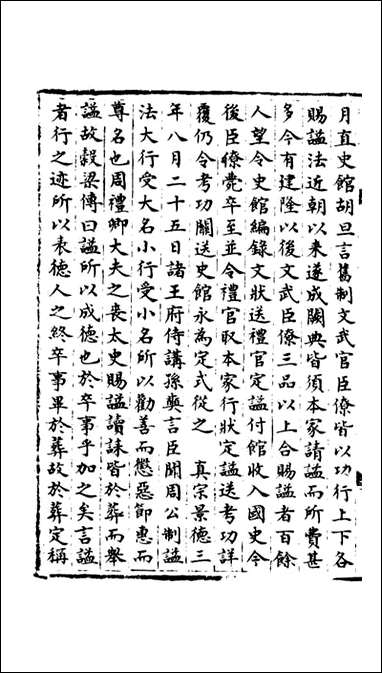 月直史館胡旦言舊制文武官臣僚皆以功行上下各
賜謚法近朝以來遂成闕典皆須本家請謚而所費甚
多今有建隆以後文武臣僚三品以上合賜謚者百餘
人望令史館編錄文狀送禮官定謚付館收入國史今
後臣僚薨卒至並令禮官取本家行狀定謚送考功詳
覆仍令考功關送史館永為定式從之　真宗景德三
年八月二十五日諸王府侍講孫奭言臣聞周公制謚
法大行受大名小行受小名所以勸善而懲惡節惠而
尊名也周禮卿大夫之喪太史賜謚讀誄皆於葬而舉
謚故穀梁傳曰謚所以成德也於卒事乎加之矣言謚
者行之迹所以表德人之終卒事畢於葬故於葬定稱